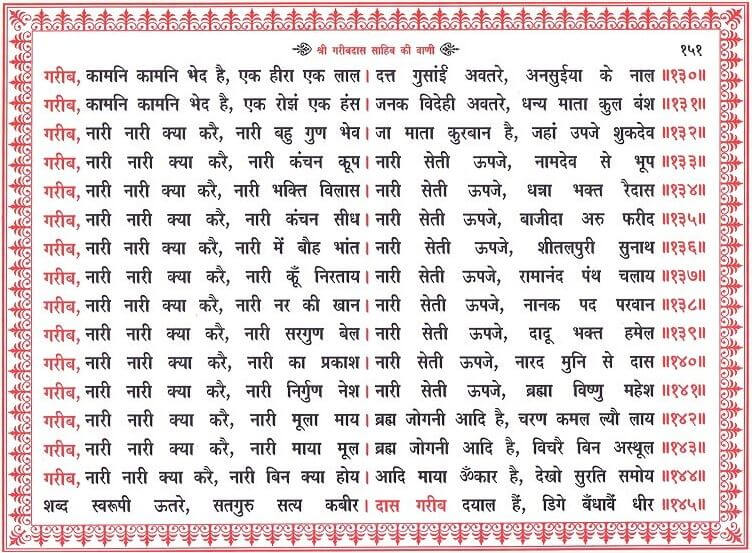 श्री गरीबदास साहिब की वाणी १५१
गरीब, कामनि कामनि भेद है, एक हीरा एक लाल। दत्त गुसांईं अवतरे, अनसुईया के नाल ॥१३०॥
गरीब, कामनि कामनि भेद है, एक रोझं एक हंस। जनक विदेही अवतरे, धन्य माता कुल बंश ॥१३१॥
गरीब, नारी नारी क्या करै, नारी बहु गुण भेव। जा माता कुरबान है, जहां उपजे शुकदेव ॥१३२॥
गरीब, नारी नारी क्या करै, नारी कंचन कूप। नारी सेती ऊपजे, नामदेव से भूप ॥१३३॥
गरीब, नारी नारी क्या करै, नारी भक्ति विलास। नारी सेती ऊपजे, धन्ना भक्त रैदास ॥१३४॥
गरीब, नारी नारी क्या करै, नारी कंचन सीध। नारी सेती ऊपजे, बाजीदा अरु फरीद ॥१३५॥
गरीब, नारी नारी क्या करै, नारी में बौह भांत। नारी सेती ऊपजे, शीतलपुरी सुनाथ ॥१३६॥
गरीब, नारी नारी क्या करै, नारी कूँ निरताय। नारी सेती ऊपजे, रामानंद पंथ चलाय ॥१३७॥
गरीब, नारी नारी क्या करै, नारी नर की खान। नारी सेती ऊपजे, नानक पद परवान ॥१३८॥
गरीब, नारी नारी क्या करै, नारी सरगुण बेल। नारी सेती ऊपजे, दादू भक्त हमेल ॥१३९॥
गरीब, नारी नारी क्या करै, नारी का प्रकाश। नारी सेती ऊपजे, नारद मुनि से दास ॥१४०॥
गरीब, नारी नारी क्या करै, नारी निर्गुण नेश। नारी सेती ऊपजे, ब्रह्मा विष्णु महेश ॥१४१॥
गरीब, नारी नारी क्या करै, नारी मूला माय। ब्रह्म जोगनी आदि है, चरण कमल ल्यौ लाय ॥१४२॥
गरीब, नारी नारी क्या करै, नारी माया मूल। ब्रह्म जोगनी आदि है, विचरै बिन अस्थूल ॥१४३॥
गरीब, नारी नारी क्या करै, नारी बिन क्या होय। आदि माया ॐकार है, देखो सुरति समोय ॥१४४॥
शब्द स्वरूपी ऊतरे, सतगुरु सत्य कबीर। दास गरीब दयाल हैं, डिगे बँधावैं धीर ॥१४५॥